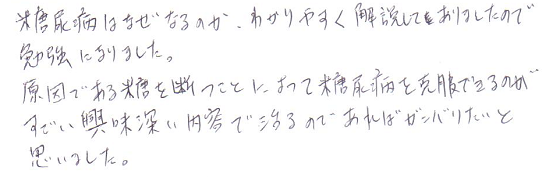 糖尿病はなぜなるのか、わかりやすく解説してありましたので
勉強になりました。
原因である糖を断つことによって糖尿病を克服できるのが
すごい興味深い内容で治るのであればガンバりたいと
思いました。